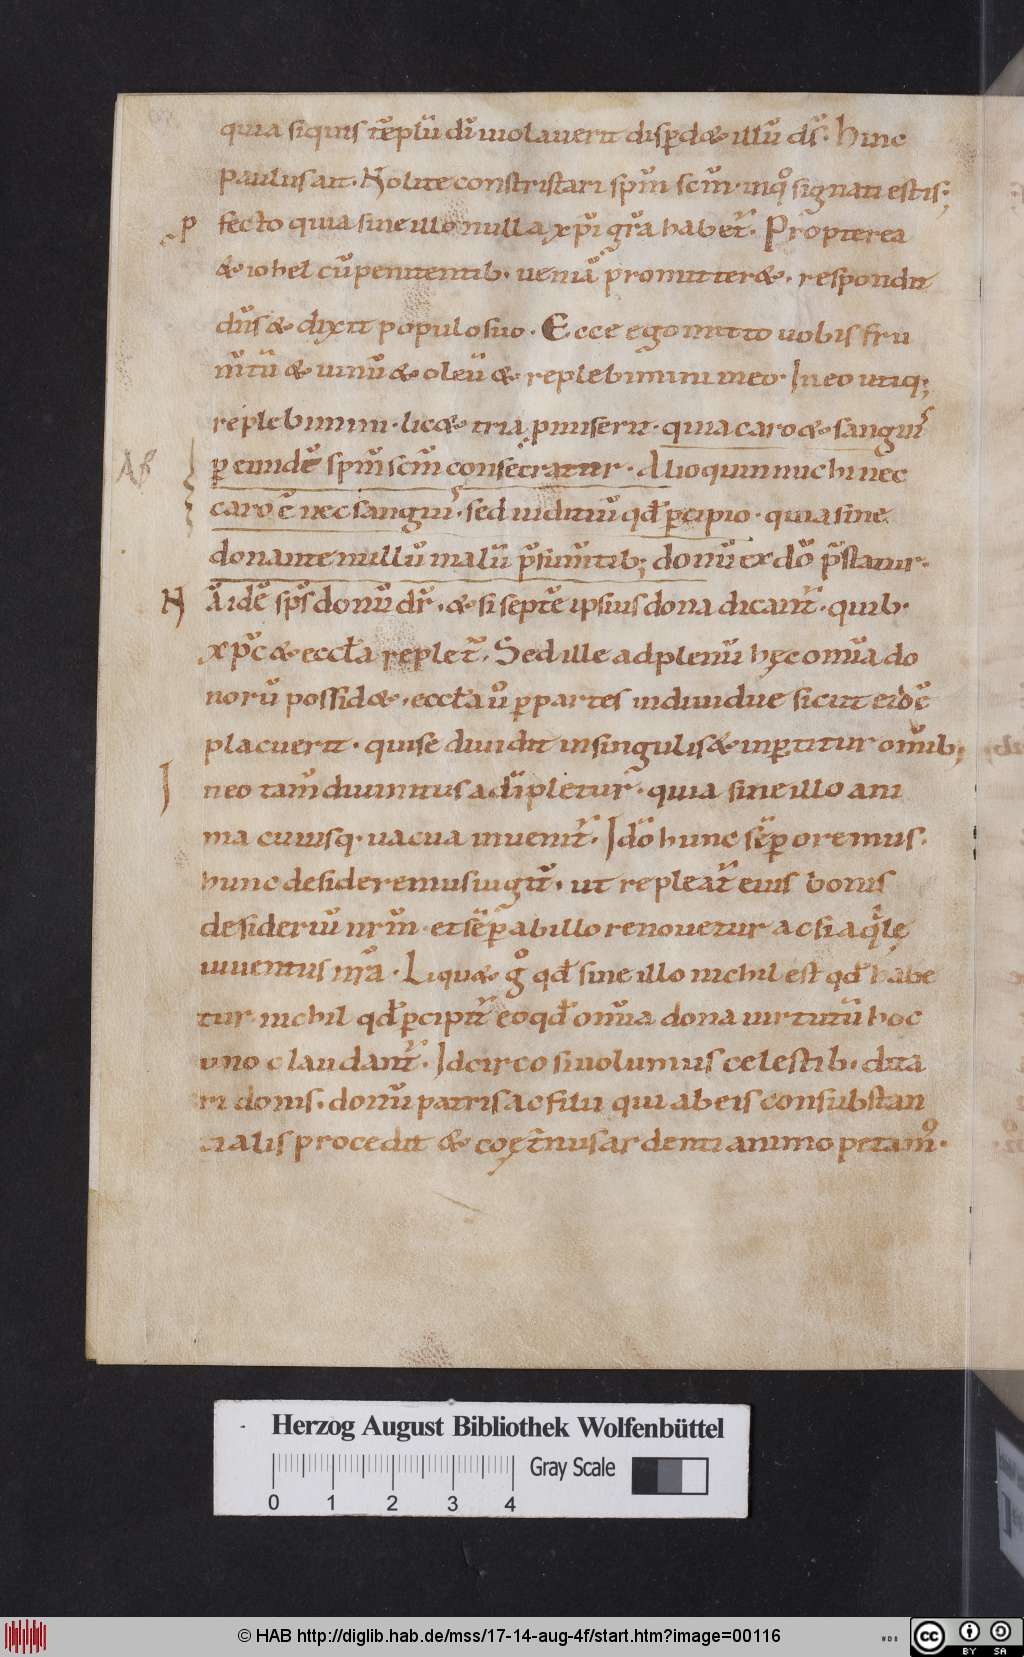 quia siquis tēplū dī uiolauerit disꝑdæ illū dš. Hinc
paulus ait. Nolite constristari spm̄ scm̄. inq̊ signati estis;
P fecto quia sine illo nulla xp̄i gr̄a habet᷑. Propterea
& iohel cū penitentib. ueniā promitteret. respondit
dn̄s & dixit populo suo. Ecce ego mitto uobis fru
m̄tū & uinū & oleū & replebimini meo. In eo utiq;
replebimini. licæ tria p̄miserit. quia caro & sanguı᷑
AB
ꝑ eundē spm̄ scm̄ consecratur. Alioquin nuchi nec
caro ē nec sangui᷑. sed iuditiū qd̄ ꝑcipio. quia sine
donante nullū malū p̄sum̄tib; donū ex dō p̄statur.
N ā idē sp̄s donū dr̄. & si septē ipsius dona dicant᷑. quib.
xp̄c & eccl̄a replet᷑. Sed ille ad plenū hęc om̄ia do
norū possidæ. eccl̄a ů ꝑ partes indiuidue sicut eidē
placuerit. qui se diuidit in singulis & inꝑtitur om̄ib;
I neo tam̄ diuinitus adīpletur᷑. quia sine illo ani
ma cuiusq. uacua inuenit᷑. Idō hunc sēꝑ oremus.
hunc desideremus iugit̄. ut repleat᷑ eius bonis
desideriū nrm̄. et sēꝑ ab illo renouetur ac si aq̄le
iuuentus nr̄a. Liquæ g̊ qd̄ sine illo nichil est qd̄ habe
tur. nichil qd̄ ꝑcipit᷑ eo qd̄ om̄ia dona uirtutū hoc
uno claudant᷑. Idcirco si uolumus celestib. dita
ri donis. donū patris ac filii qui ab eis consubstan
tialis procedit & coęt̄nus ardenti animo petam̊.
Herzog August Bibliothek Wolfenbüttel
Gray Scale
0 1 2 3 4
© HAB http://diglib.hab.de/mss/17-14-aug-4f/start.htm?image=00116
WDB
cc BY SA